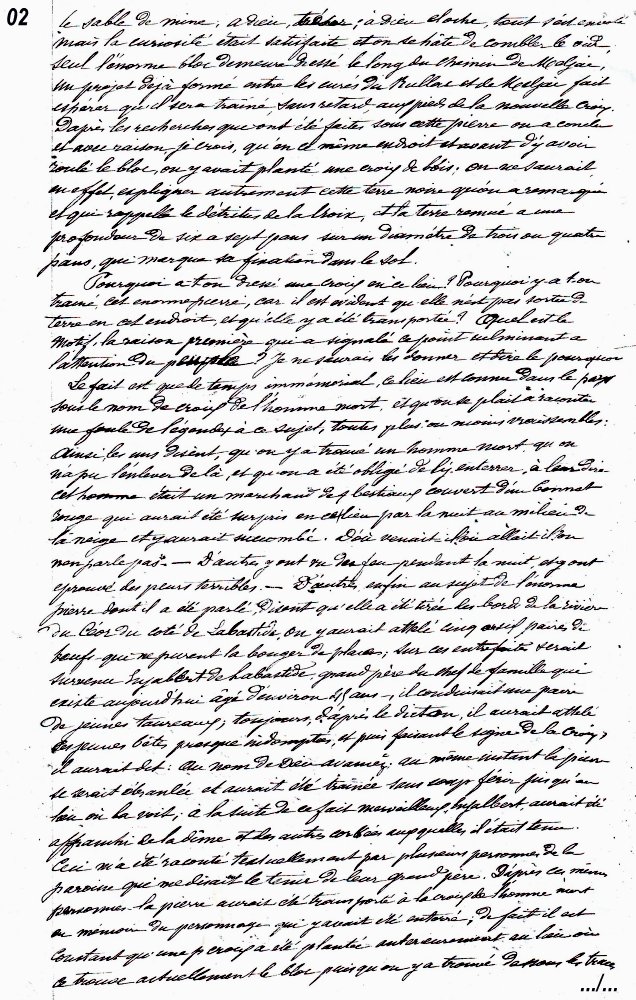 02
le sable de mine, adieu, trésor; adieu cloche, tout s'est envolé
mais la curiosité était satisfaite et on se hâte de combler le
seul l'énorme bloc demeure dressé le long du chemin de
un projet déjà formé entre les curés du et de fait
espérer qu'il sera trainé, sans retard aux pieds de la nouvelle croix.
Daprès les recherches que ont été faites sous cette pierre on a conclu
et avec raison, je crois, qu'en ce même endroit et avant d'y avoir
roulé le bloc, on y avait planté une croix de bois; on ne saurait
en effet, expliquer autrement cette terre noire qu'on a remarqué
et qui rappelle le détritus de la croix, et la terre remué a une
profondeur de six a sept pans sur un diamètre de trois ou quatre
pans, qui marque sa fixation dans le sol.
Pourquoi a-t-on dressé une croix en ce lieu? Pourquoi y a-t-on
trainé, cet enorme pierre, car il est evident qu'elle n'est pas sortie de
terre en cet endroit, et qu'elle y a été transportée? Quel est le
motif, la raison première qui a signalé ce point culminant a
l'attention du peuple? Je ne saurais les donner et dire le pourquoi
Le fait est que de temps immémorial, ce lieu est connu dans le pays
sous le nom de croix de l'homme mort, et qu'on se plait à raconter
une foule de légendes à ce sujet, toutes plus ou moins vraissembles:
Ainsi les uns disent, qu'on y a trouvé un homme mort, qu'on
n'a pu l'enlever de là, et qu'on a été obligé de l'y enterrer, à leur dire
cet homme était un marchand des bestiaux couvert d'un bonnet
rouge qui aurait été surpris en ce lieu par la nuit au milieu de
la neige et y aurait succombé. D'où venait-il où allait-il on
n'en parle pas. — D'autres y ont vu des feu pendant la nuit, et y ont
eprouvé des peurs terribles. — D'autres, enfin au sujet de l'enorme
pierre dont il a été parlé, disent qu'elle a été tirée des bords de la rivière
du Céor du coté de Labastide, on y aurait attelé cinq ou six paires de
bœufs qui ne purent la bouger de place; sur ces entrefaits serait
survenu de Labastide, grand père du chef de famille qui
existe aujourd'hui âgé d'environ ans, il conduisait une paire
de jeunes taureaux; toujours, d'après le dicton, il aurait attelé
ses jeunes bêtes, presque indomptes, et puis faisant le signe de la croix,
il aurait dit: au nom de Dieu avancez; au même instant la pierre
se serait ébranlée et aurait été trainée sans coup férir jusqu'au
lieu où la voit; à la suite de ce fait merveilleux, aurait été
affranchi de la dîme et des autres corbées auxquelles il était tenu.
Ceci m'a été raconté textuellement par plusieurs personnes de la
paroisse qui me disait le tenir de leur grand père. D'après ces mêmes
personnes la pierre aurait été transporté à la croix de l'homme mort
en mémoire du personnage qui y avait été enterré; de fait il est
constant qu'une croix a été plantée anterieurement au lieu où
se trouve actuellement le bloc puisqu'on y a trouvé dessous les traces
.../...